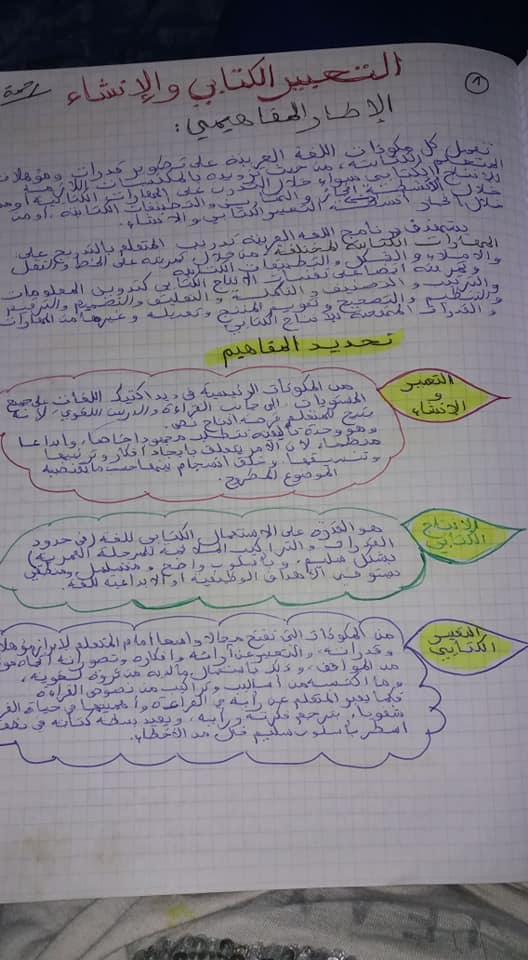 1
التعبير الكتابي والإنشاء
الإطار المفاهيمي:
تعمل كل مكونات اللغة العربية على تطوير قدرات ومؤهلات
المتعلم الكتابية، من حيث تزويده بالمكتسبات اللازمة
للإنتاج الكتابي سواء خلال التدرب على المهارات الكتابية أو من
خلال أنشطة التعبير الكتابي والإنشاء.
يستهدف برنامج اللغة العربية تدريب المتعلم بالتدريج على
المهارات الكتابية المختلفة، من خلال تمرينه على الخط والنقل
والإملاء والشكل والتطبيقات الكتابية
وتمرينه أيضا على تقنيات الإنتاج الكتابي كتدوين المعلومات
والترتيب والتصنيف والتكملة والتعليق والتصميم
والتنظيم والتصحيح وتقويم المنتج وتعديله وغيرها من المهارات
والقدرات الكتابي
تحديد المفاهيم
التعبير
و
الإنشاء
من المكونات الرئيسية في ديداكتيك اللغات لجميع
المستويات، إلى جانب القراءة والدرس اللغوي، لأنه
يتيح للمتعلم فرصة إنتاج نص.
وهو وحدة تأليفية تتطلب مجهودا خاصا، وإبداعا
منظما، لأن الأمر يتعلق بإيجاد أفكار وترتيبها
وتنسيقها، وخلق انسجام بينها حسب ما تقتضيه
الموضوع المطروح.
الإنتاج
الكتابي
هو القدرة على الاستعمال الكتابي للغة (في حدود
المفردات والتراكيب الملائمة للمرحلة العمرية)
بشكل سليم، وبأسلوب واضح ومتسلسل ومنطقي
يستوفي الأهداف الوظيفية أو الإبداعية للغة.
التعبير
الكتابي
من المكونات التي تفتح مجالا واسعا أمام المتعلم لإبراز مؤهلاته
وقدراته، والتعبير عن آرائه وأفكاره وتصوراته اتجاه
من المواقف، وذلك باستعمال ما لديه من ثروة لغوية،
وما اكتسبه من أساليب وتراكيب من نصوص القراءة
فكما يعبر المتعلم عن رأيه في القراءة وأهميتها في حياة
شفويا، يترجم فكرته ورأيه، ويعيد بسطه كتابة في
أسطر بأسلوب سليم خال من الأخطاء.